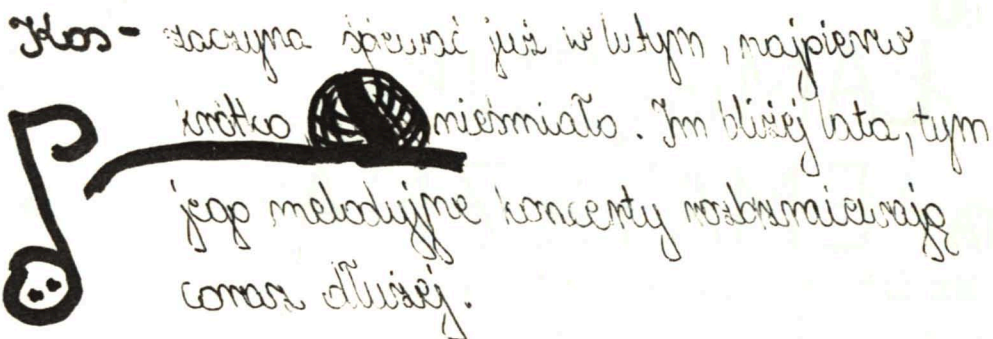 Kos - zaczyna śpiewać już w lutym, najpierw
krótko, nieśmiało. Im bliżej lata, tym
jego melodyjne koncerty rozbrzmiewają
coraz dłużej.